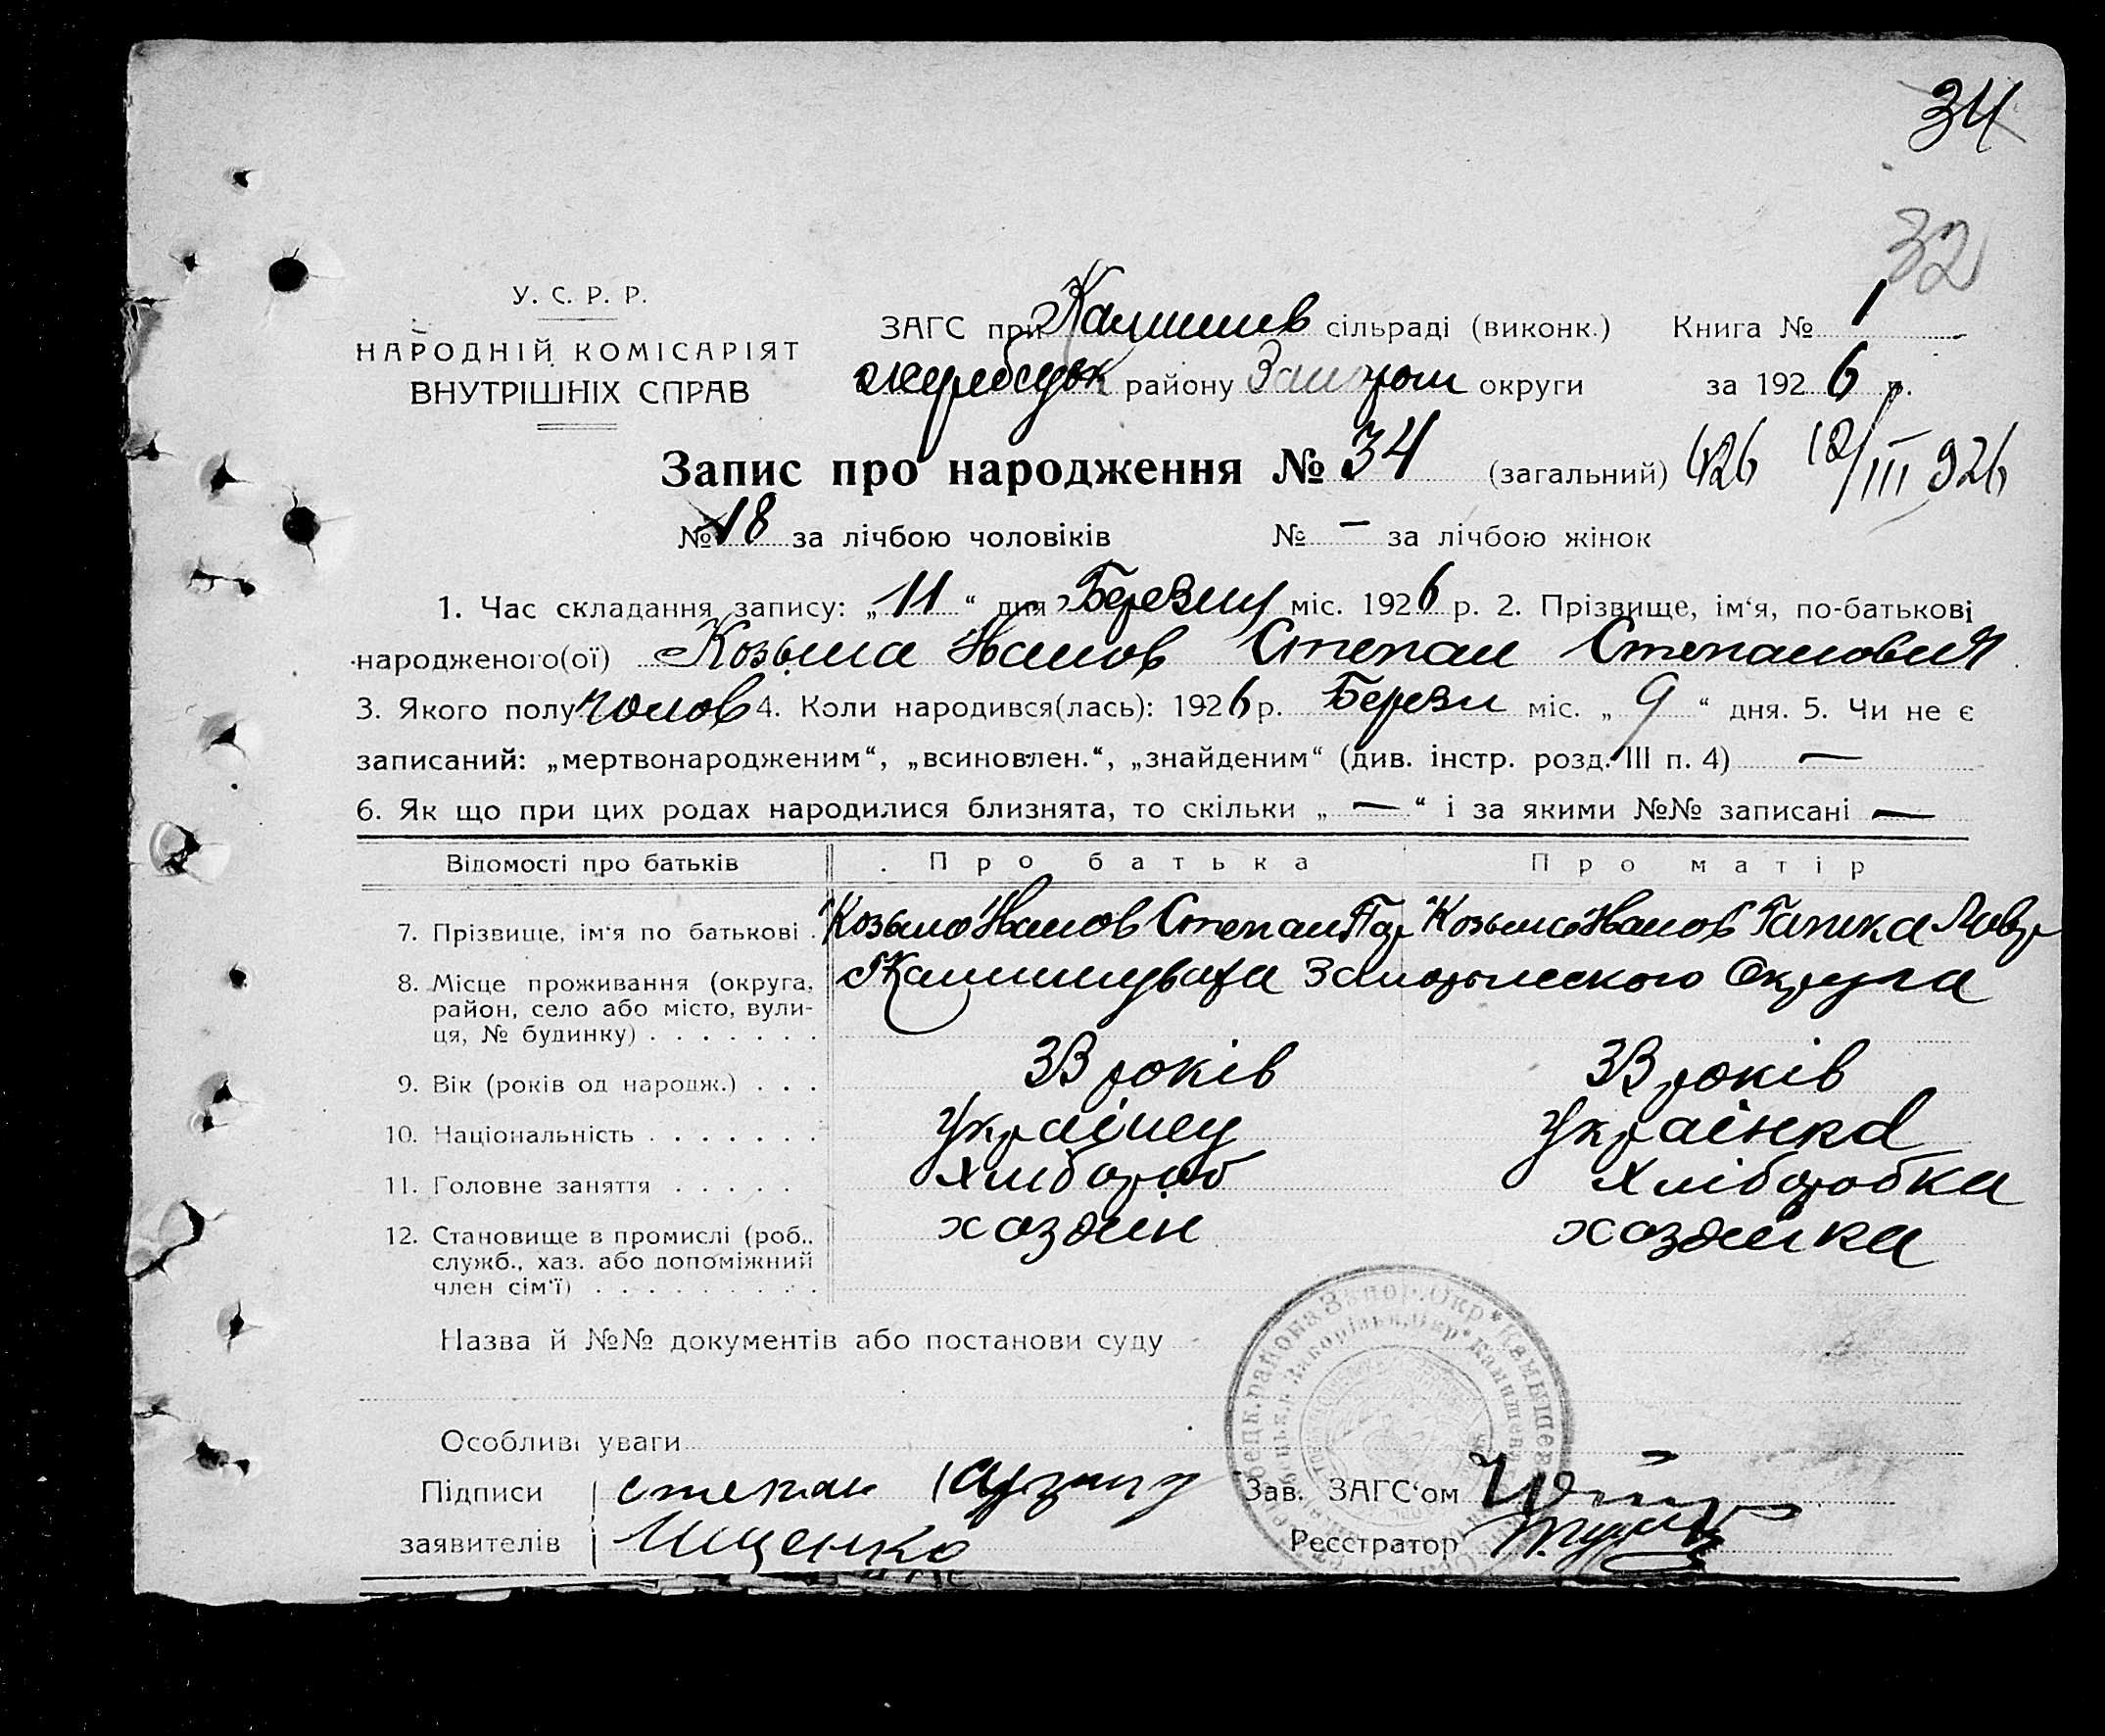 34
32
У. С. Р. Р.
НАРОДНІЙ КОМІСАРІЯТ
ВНУТРІШНІХ СПРАВ
ЗАГС при Камишев сільраді (виконк.) Книга № 1
жеребецьк району Запорож округи за 1926 р.
Запис про народження № 34 (загальний) 426 12/III 926
№ 18 за лічбою чоловіків № — за лічбою жінок
1. Час складання запису: „11“ дня Березня міс. 1926 р. 2. Прізвище, ім‘я, по-батькові
народженого(ої) Козьма Иванов Степан Степанович
3. Якого полу чолов 4. Коли народився(лась): 1926 р. Березн міс. „9“ дня. 5. Чи не є
записаний: „мертвонародженим“, „всиновлен.“, „знайденим“ (див. інстр. розд. III п. 4) —
6. Як що при цих родах народилися близнята, то скільки „—“ і за якими №№ записані —
Відомості про батьків Про батька Про матір
7. Прізвище, ім‘я по батькові . Козьмо Иванов Степан Козьмо Иванов Гапка Лавр
8. Місце проживання (округа, Запорожского Округа
район, село або місто, вули-
ця, № будинку) . . . . . . .
9. Вік (років од народж.) . . . 33 років 33 років
10. Національність . . . . . . . Українец Українка
11. Головне заняття . . . . . Хлібороб Хліборобка
12. Становище в промислі (роб., хозяин хозяйка
служб., хаз. або допоміжний
член сім‘ї) . . . . . . . . .
Назва й №№ документів або постанови суду
Особливі уваги
Підписи степан Зав. ЗАГС‘ом
заявителів Ищенко Реєстратор